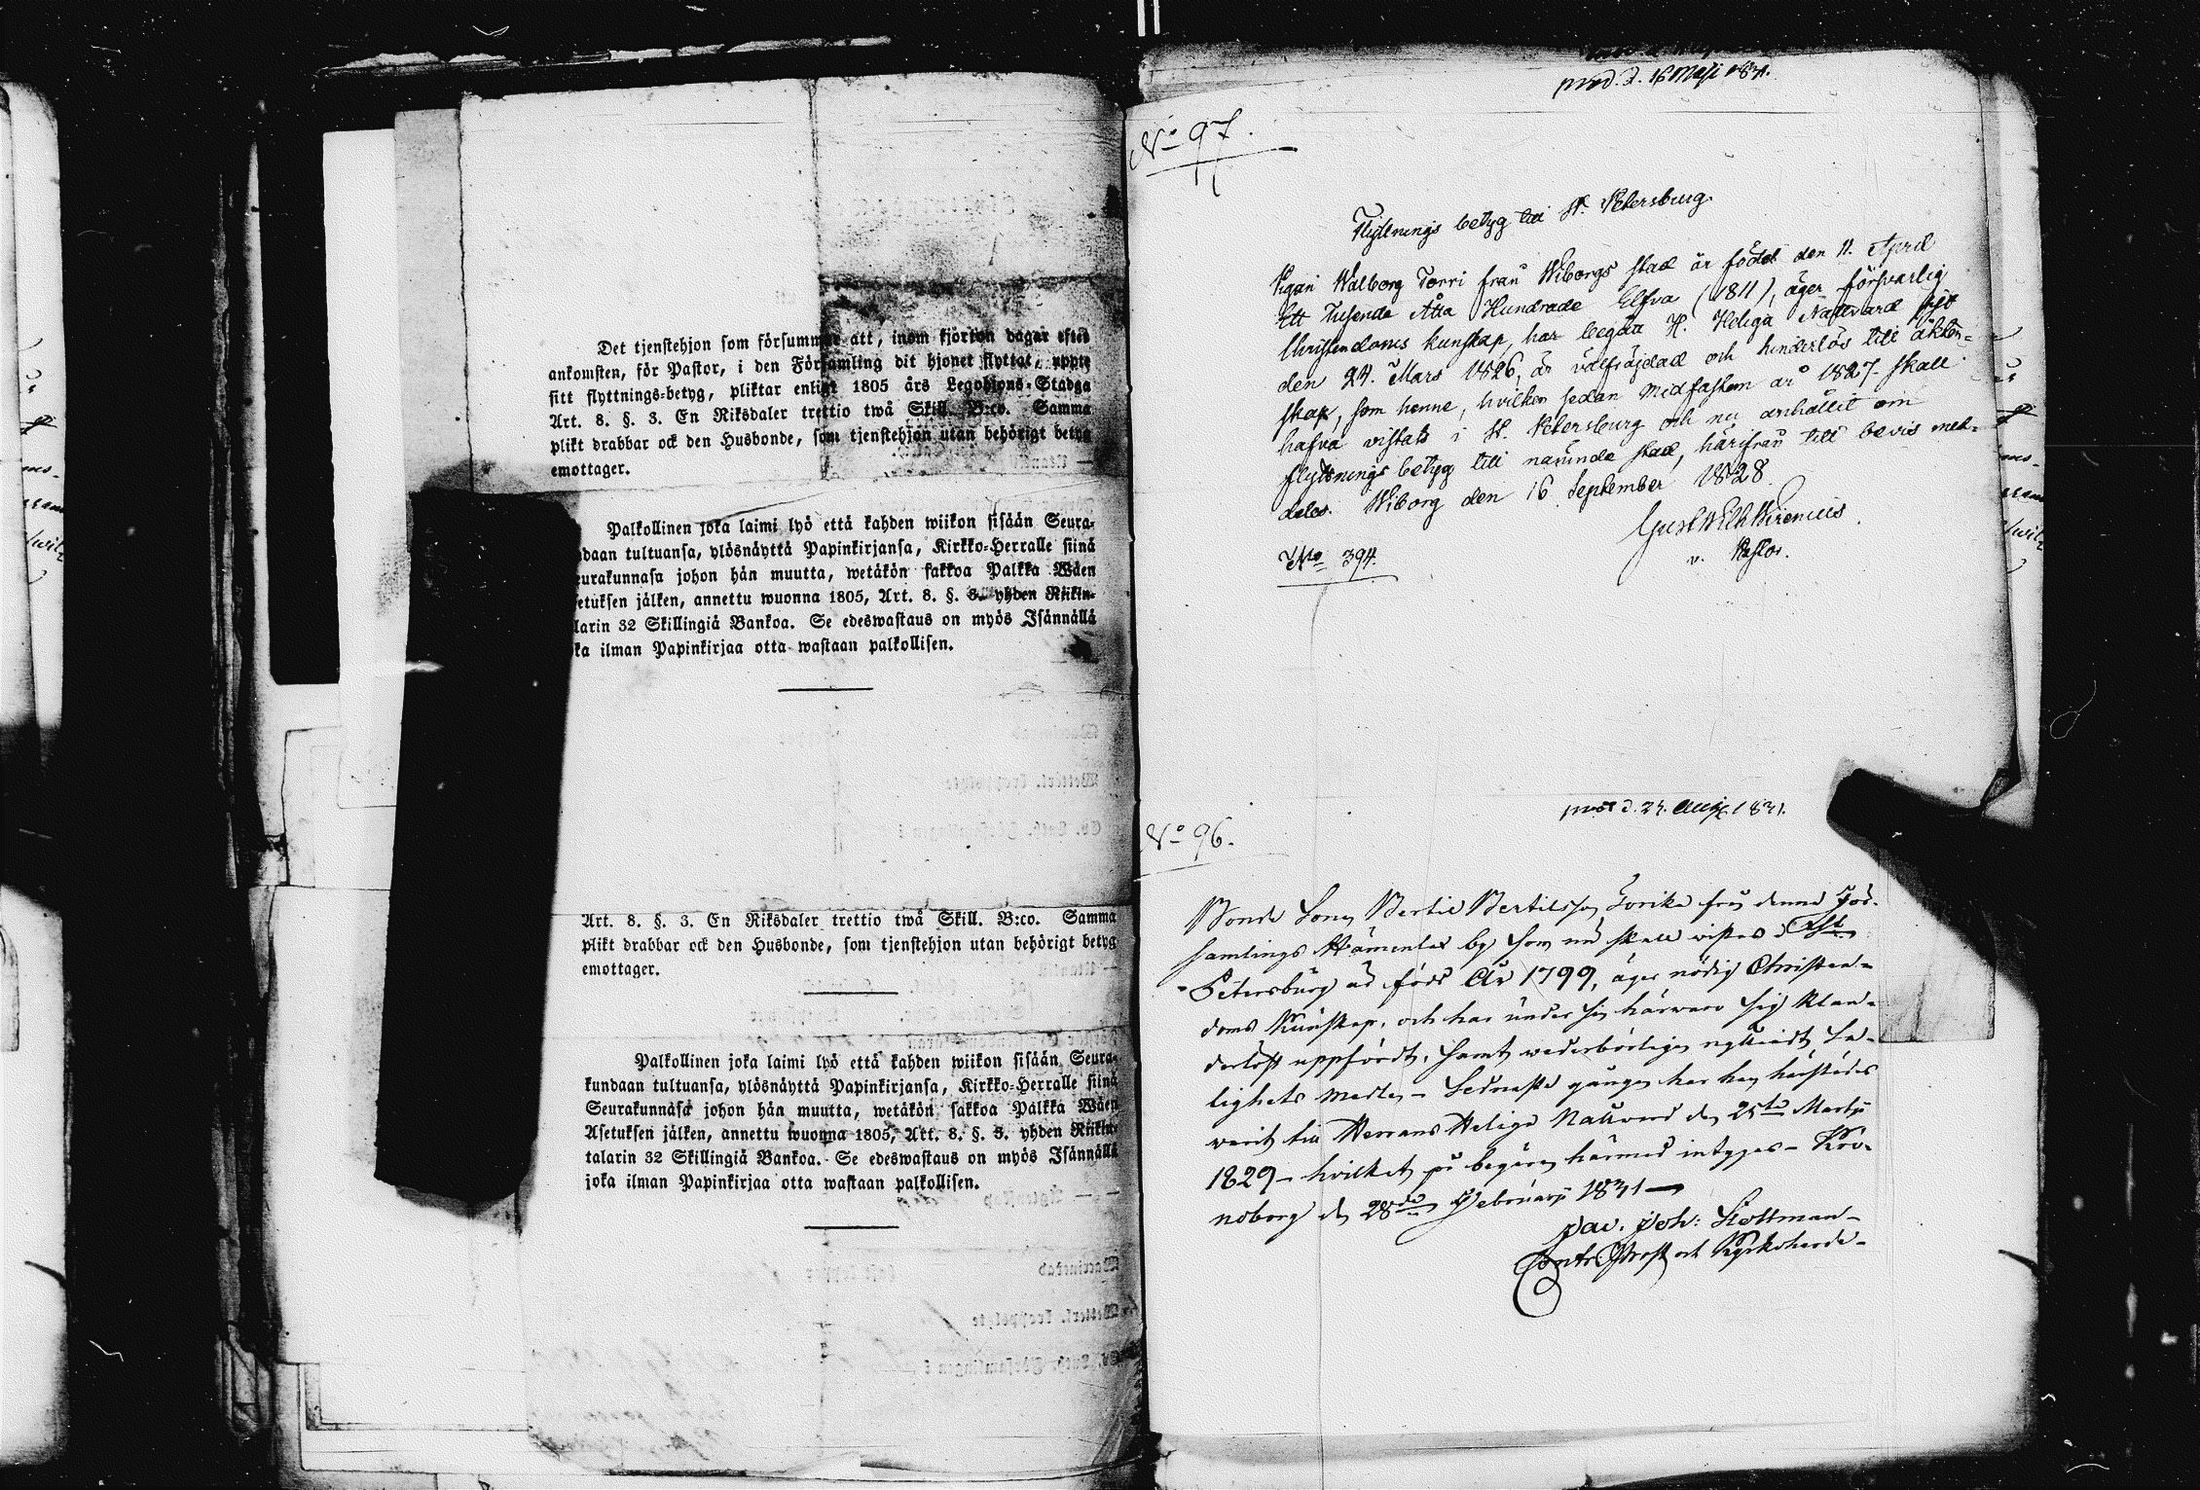 Det tjenstehjon som försummar att, inom fjorton dagar efter
ankomsten, för Pastor, i den Församling dit hjonet flyttat, uppte
sitt flyttnings-betyg, pliktar enligt 1805 års Legohjons-Stadga
Art. 8. §. 3. En Riksdaler trettio twå Skill. B:co. Samma
plikt drabbar ock den Husbonde, som tjenstehjon utan behörigt betyg
emottager.
Palkollinen joka laimi lyö että kahden wiikon sisään Seura-
daan tultuansa, ylösnäyttä Papinkirjansa, Kirkko-Herralle siinä
eurakunnasa johon hän muutta, wetäkön sakkoa Palkka Wäen
etuksen jälken, annettu wuonna 1805, Art. 8. §. 3. yhden Riikin-
larin 32 Skillingiä Bankoa. Se edeswastaus on myös Isännällä
ka ilman Papinkirjaa otta wastaan palkollisen.
Art. 8. §. 3. En Riksdaler trettio twå Skill. B:co. Samma
plikt drabbar ock den Husbonde, som tjenstehjon utan behörigt betyg
emottager.
Palkollinen joka laimi lyö että kahden wiikon sisään Seura-
kundaan tultuansa, ylösnäyttä Papinkirjansa, Kirkko-Herralle siinä
Seurakunnasa johon hän muutta, wetäkön sakkoa Palkka Wäen
Asetuksen jälken, annettu wuonna 1805, Art. 8. §. 3. yhden Riikin-
talarin 32 Skillingiä Bankoa. Se edeswastaus on myös Isännällä
joka ilman Papinkirjaa otta wastaan palkollisen.
prod. d. 16 Maji 1831.
No 97.
Flyttnings betyg till St. Petersburg.
Pigan Walborg Torri från Wiborgs stad är född den 11. April
Ett Tusende Åtta Hundrade Elfva (1811), äger försvarlig
Christendoms kunskap, har begått H. Heliga Nattvard
den 24. Mars 1826, är välfrägdad och hinderlös till äkten-
skap, som henne, hvilken sedan Midfastan år 1827 skall
hafva vistats i St. Petersburg och nu anhållit om
flyttnings betyg till nämnde stad, härifrån till bevis med-
delas. Wiborg den 16 September 1828.
Gust Wilh Wirenius
v. Pastor.
No 394.
prod d. 24. Aug. 1831.
No 96.
Bonde Sonen Bertil Bertilsson från denna För-
samlings by som nu skall vistas i St
Petersburg är född År 1799, äger nödig Christen-
doms Kunskap, och har under sin härvaro sig klan-
derlöst uppfördt, samt wederbörligen
Sednaste gången har han härstädes
warit till Herrans Heliga Nattvard den 25te Martii
1829 – hvilket på begäran härmed intygas – Kro-
noborg den 28de Februarii 1831 –
Joh:
Contr. Prost och Kyrkoherde –